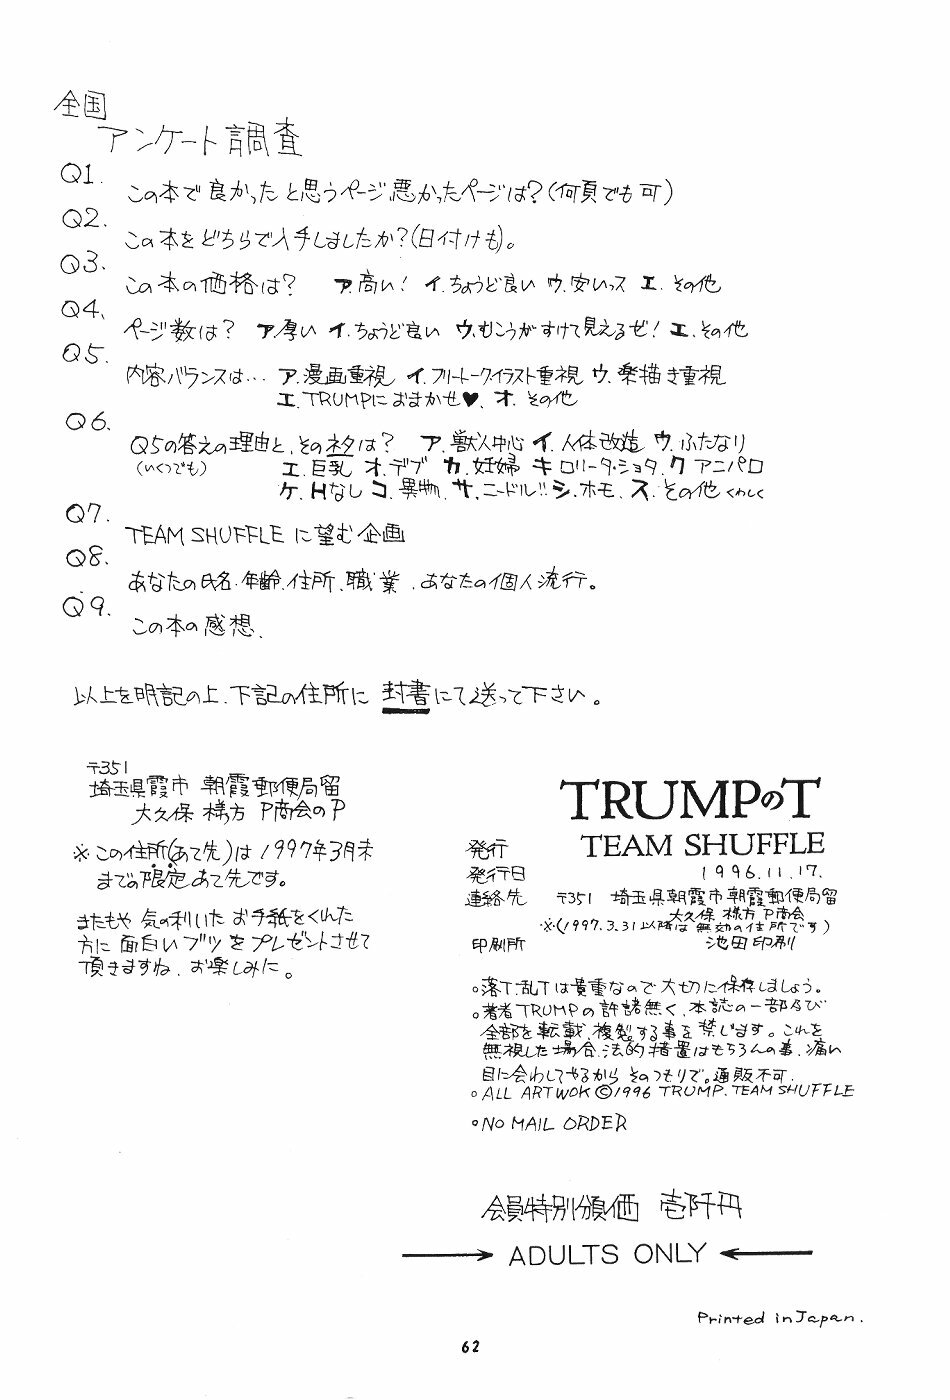 全国
アンケート調査
Q1.
この本で良かったと思うページ悪かったページは?(何頁でも可)
Q2.
この本をどちらで入手しましたか?(日付けも)。
Q3.
この本の価格は? ア.高い! イ.ちょうど良い ウ.安いっス エ.その他
Q4、
ページ数は? ア.厚い イ.ちょうど良い ウ.むこうがすけて見えるぜ! エ.その他
Q5.
内容バランスは… ア.漫画重視 イ.フリートークイラスト重視 ウ.楽描き重視
エ.TRUMPにおまかせ♥、オ.その他
Q6.
Q5の答えの理由と、そのネタは? ア.獣人中心 イ.人体改造 ウ.ふたなり
(いくつでも) エ.巨乳 オ.デブ カ.妊婦 キ ロリータ・ショタ、ク アニパロ
ケ.Hなし コ.異物、サ.ニードル!! シ.ホモ、ス.その他 くわしく
Q7.
TEAM SHUFFLE に望む企画
Q8.
あなたの氏名、年齢、住所、職業、あなたの個人流行。
Q9.
この本の感想、
以上を明記の上、下記の住所に 封書にて送って下さい。
〒351
埼玉県霞市 朝霞郵便局留
大久保 様方 P商会のP
※この住所(あて先)は1997年3月末
までの限定あて先です。
またもや 気の利いた お手紙をくれた
方に 面白いブツをプレゼントさせて
頂きますね、お楽しみに。
TRUMPのT
発行 TEAM SHUFFLE
発行日 1996.11.17.
連絡先 〒351 埼玉県朝霞市朝霞郵便局留
大久保 様方 P商会
※(1997.3.31以降は無効の住所です)
印刷所 池田印刷
○落丁.乱丁は貴重なので大切に保存しましょう。
○著者TRUMPの許諾無く、本誌の一部及び
全部を転載、複製する事を禁じます。これを
無視した場合、法的措置はもちろんの事、痛い
目に会わしてやるから そのつもりで。通販不可.
○ALL ARTWOK ©1996 TRUMP. TEAM SHUFFLE
○NO MAIL ORDER
会員特別頒価 壱阡円
ADULTS ONLY
Printed in Japan.
62